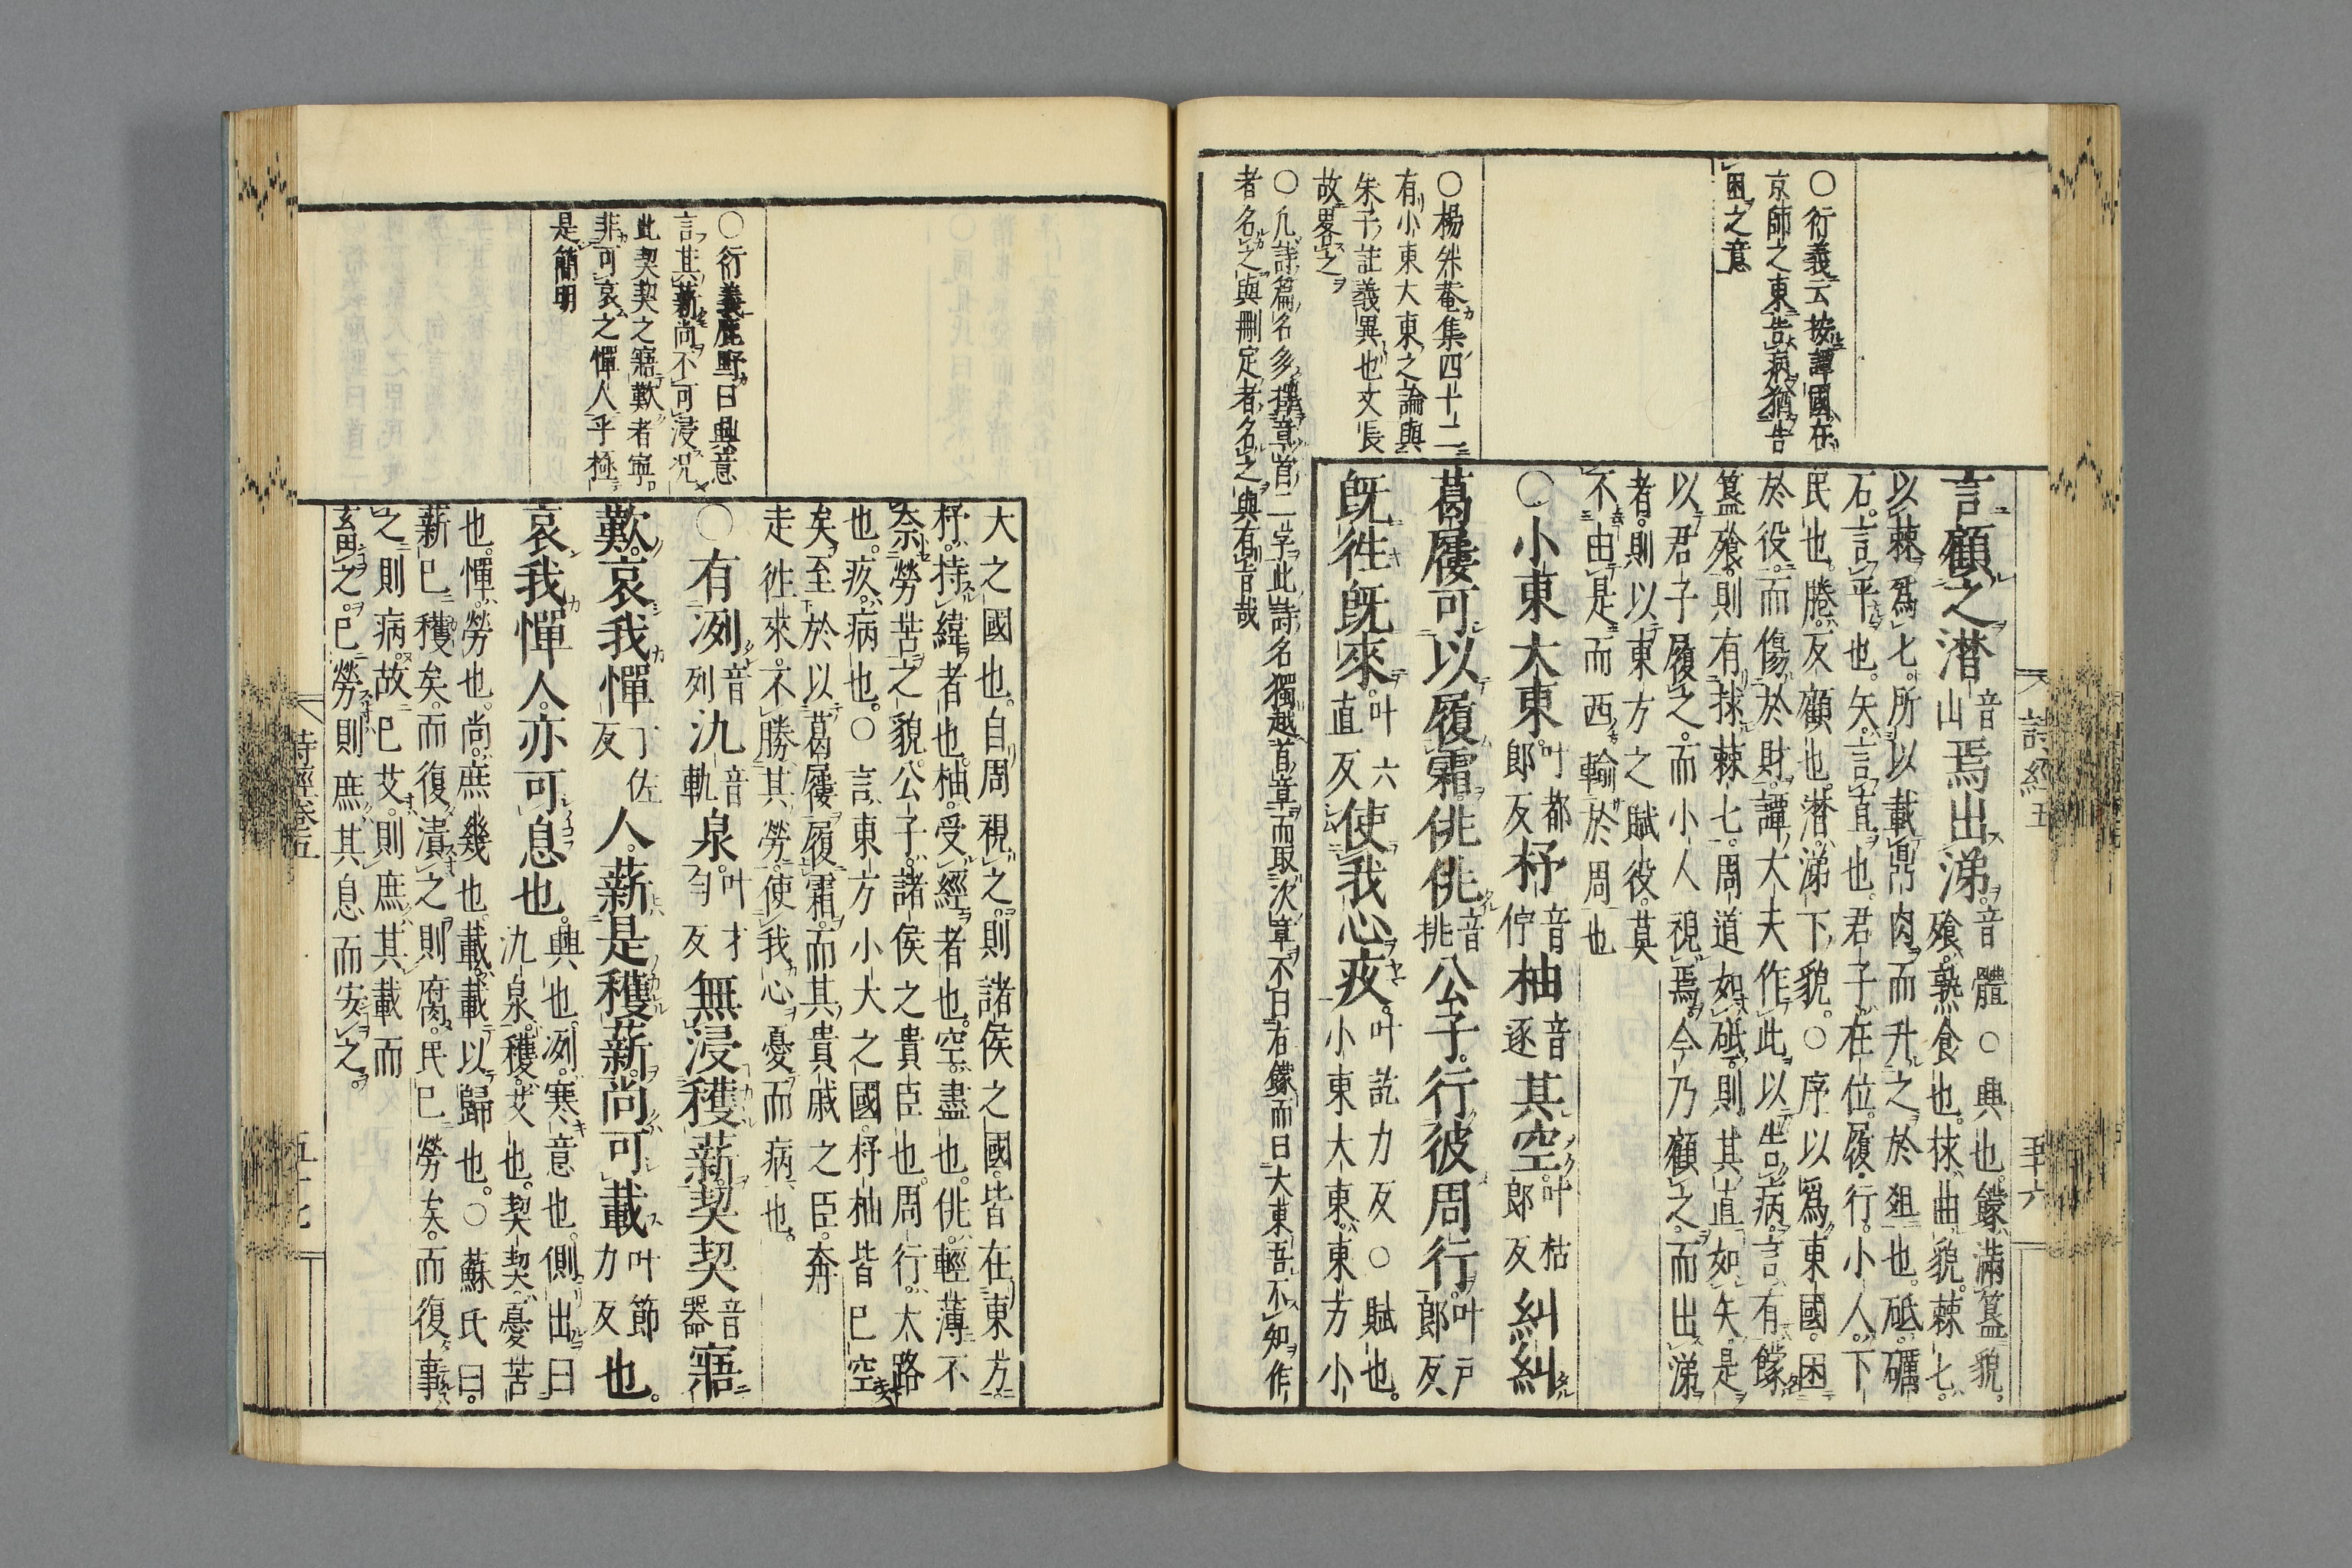 言顧之潸音山焉出涕音體○興也饛滿簋貌
飧熟食也捄曲貌棘匕
以棘爲匕所以載鼎肉而升之於俎也砥礪
石言平也矢言直也君子在位履行小人下
民也睠反顧也潸涕下貌○序以爲東國困
於役而傷於財譚大夫作此以告病言有饛
簋飧則有捄棘匕周道如砥則其直如矢是
以君子履之而小人視焉今乃顧之而出涕
者則以東方之賦役莫
不由是而西輸於周也
○小東大東叶都郎反杼音佇柚音逐其空叶枯郎反糾糾
葛屨可以履霜佻佻音挑公子行彼周行叶戸郎反
旣徃旣來叶六直反使我心疚叶訖力反○賦也
小東大東東方小
○衍義云按譚國在
京師之東告病猶告
困之意
○楊升菴集四十二
有小東大東之論與
朱子註義異也文長
故畧之
○凡詩篇名多擇章首二字此詩名獨越首章而取次章不曰有饛而曰大東吾不知作
者名之與刪定者名之與有旨哉
詩經五
五十六
大之國也自周視之則諸侯之國皆在東方
杼持緯者也柚受經者也空盡也佻輕薄不
奈勞苦之貌公子諸侯之貴臣也周行大路
也疚病也○言東方小大之國杼柚皆已空
矣至於以葛屨履霜而其貴戚之臣奔
走徃來不勝其勞使我心憂而病也
○有洌音列氿音軌泉叶才匀反無浸穫薪契契音器寤
歎哀我憚丁佐反人薪是穫薪尚可載叶節力反也
哀我憚人亦可息也興也洌寒意也側出曰
氿泉穫艾也契契憂苦
也憚勞也尚庶幾也載載以歸也○蘇氏曰
薪已穫矣而復漬之則腐民已勞矣而復事
之則病故已艾則庶其載而
畜之已勞則庶其息而安之
○衍義鹿野曰興意
言其薪尚不可浸况
此契契之寤歎者寧
非可哀之憚人乎極
是簡明
詩經卷五
五十七